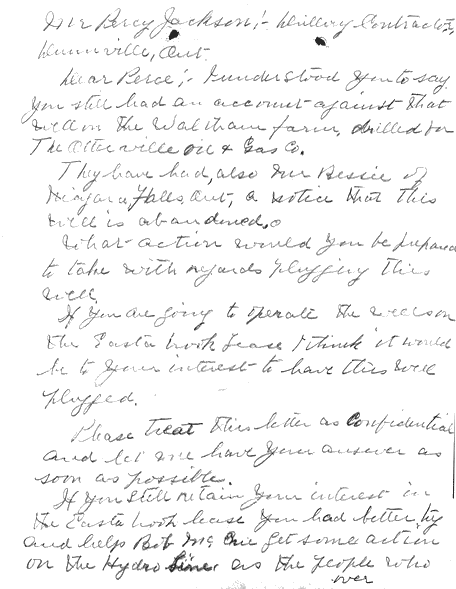 Mr Percy Jackson;- Drillery Contractor,
Dunnville, Ont.
Dear Perce;- I understood you to say
you still had an account against that
well on the Waltham farm, drilled for
The Otterville oil & Gas Co.
They have had, also Mr Bessie of
Niagara Falls Ont, a notice that this
well is abandoned.
What action would you be prepared
to take with regards plugging this
well.
If you are going to operate the wells on
the Easterbrook Lease I think it would
be to your interest to have this well
plugged.
Please treat this letter as Confidential
and let me have your answer as
soon as possible.
If you still retain your interest in
the Easterbrook lease you had better try
and help Bob get some action
on the Hydro Line as the people who
over